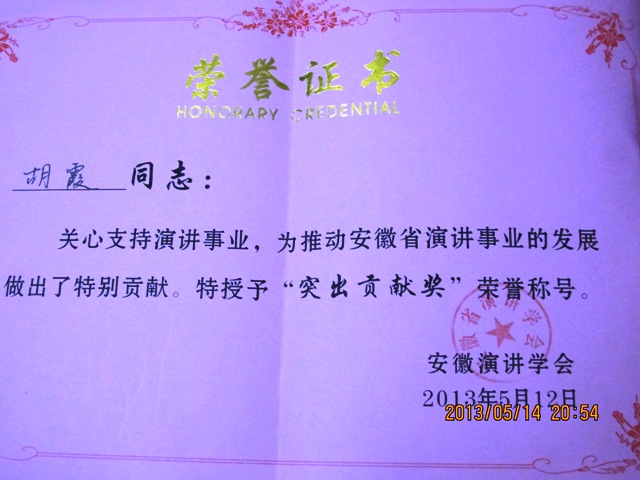 荣誉证书
HONORARY CREDENTIAL
胡霞 同志：
关心支持演讲事业，为推动安徽省演讲事业的发展
做出了特别贡献。特授予“突出贡献奖”荣誉称号。
徽省演讲学会
安徽演讲学会
2013年5月12日
2013/05/14 20:54